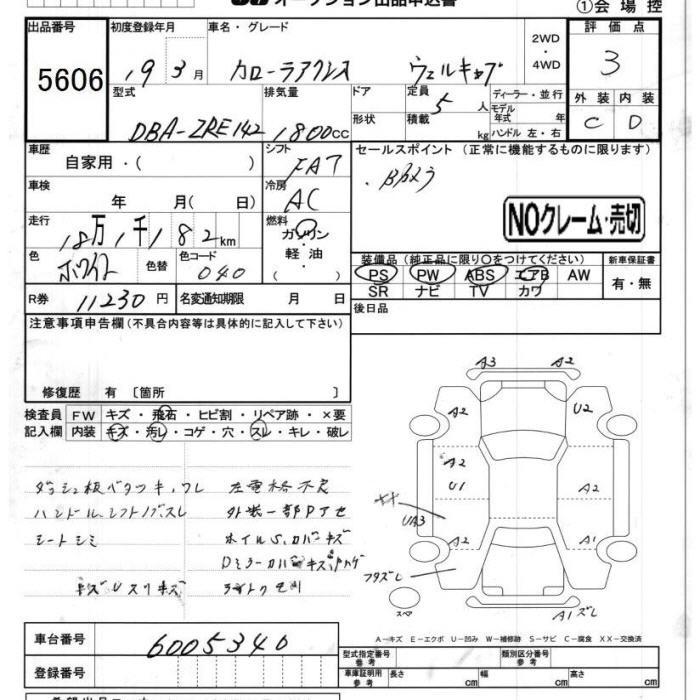 オークション出品申込書
①会場控
出品番号 初度登録年月 車名・グレード 2WD・4WD 評価点
5606 19 3月 カローラアクシス 3
型式 排気量 ドア 定員 ディーラー・並行 外装 内装
形状 5人 モデル年式 年式
DBA-ZRE142 1800CC 積載 kg ハンドル 左・右 C D
車歴 シフト セールスポイント (正常に機能するものに限ります)
自家用・( ) FAT
車検 冷房
年 月( 日) AC
NOクレーム・売切
走行 燃料
18万1千182km ガソリン・軽油・
色 色替 色コード 装備品 (純正品に限り○をつけてください) 新車保証書
ホワイト 040 PS PW ABS エアB AW 有・無
SR ナビ TV カワ
R券 11230円 名変通知期限 月 日
後日品
注意事項申告欄 (不具合内容等は具体的に記入して下さい)
修復歴 有 〔箇所 〕
検査員記入欄 FW キズ・飛石・ヒビ割・リペア跡・×要
内装 キズ・汚レ・コゲ・穴・スレ・キレ・破レ
A3 A2
A2 U2
A2
U1 A2
XX
UA3
A2 A1
フタズレ
A1ズレ
スペア
ダッシュ板ベタツキ、ワレ
ハンドル、シフトノブスレ
シートシミ
外装一部Pアセ
ホイルS.カバーキズ
A－キズ E－エクボ U－凹み W－補修跡 S－サビ C－腐食 XX－交換済
車台番号 6005340
登録番号
型式指定番号 参考 類別区分番号 参考
車庫証明用 参考 長さ cm 幅 cm 高さ cm